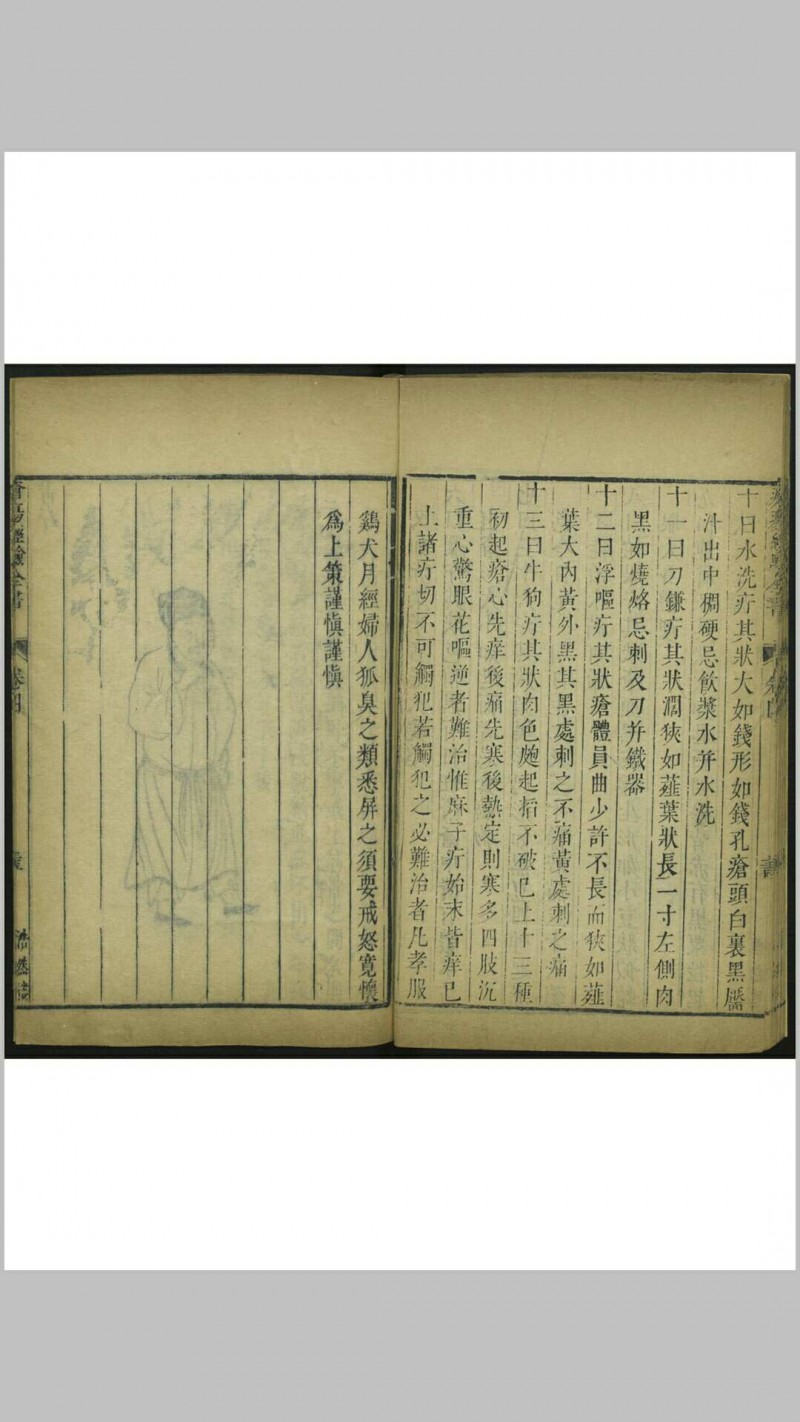 十曰水洗疔其狀大如錢形如錢孔瘡頭白裏黑靨
汁出中稠硬忌飲漿水并水洗
十一曰刀鎌疔其狀濶狹如薤葉狀長一寸左側肉
黑如燒烙忌刺及刀并鐵器
十二曰浮嘔疔其狀瘡體員曲少許不長而狹如薤
葉大內黃外黑其黑處刺之不痛黃處刺之痛
十三曰牛狗疔其狀肉色皰起掐不破已上十三種
初起瘡心先痒後痛先寒後熱定則寒多四肢沉
重心驚眼花嘔逆者難治惟麻子疔始末皆痒已
上諸疔切不可觸犯若觸犯之必難治者凡孝服
鷄犬月經婦人狐臭之類悉屏之須要戒怒寬懷
為上策謹愼謹愼
經驗全書
卷四